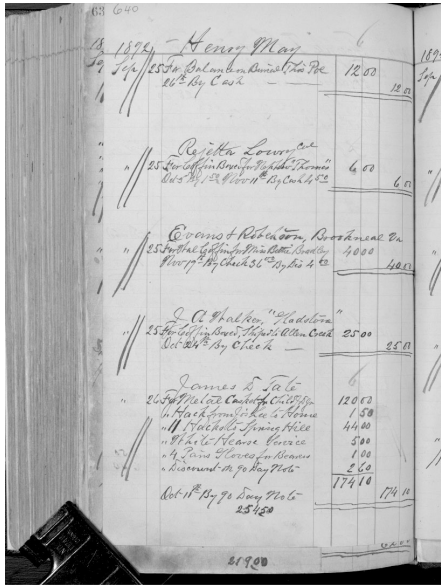 63 640
1892 Henry May 6
Sep 25 For Balance on Burial This Poe 12 00
26th By Cash 12 00
Rejetta Lowry Col
" 25 For Coffin Boxed for Nephew Thomas 6 00
Oct 5th By 1 50 Nov 11th By Cash 4 50 6 00
Evans & Robertson, Brookneal Va
" 25 For Wal Coffin for Miss Bettie Bradley 40 00
Nov 17th By Check 36 00 By Dis 4 00 40 00
J A Walker, "Gladstone"
" 25 For Coffin Boxed, Ship to Allen Creek 25 00
Oct 24th By Check 25 00
James D Tate 6
" 26 For Metal Casket for Child 120 00
" Hack from to Home 1 50
" 11 Hacks to Spring Hill 44 00
" White Hearse Service 5 00
" 4 Pairs Gloves for Bearers 1 00
" Discount on 90 Day Note 2 60
174 10
Oct 11th By 90 Day Note 174 10
254 50
219 00